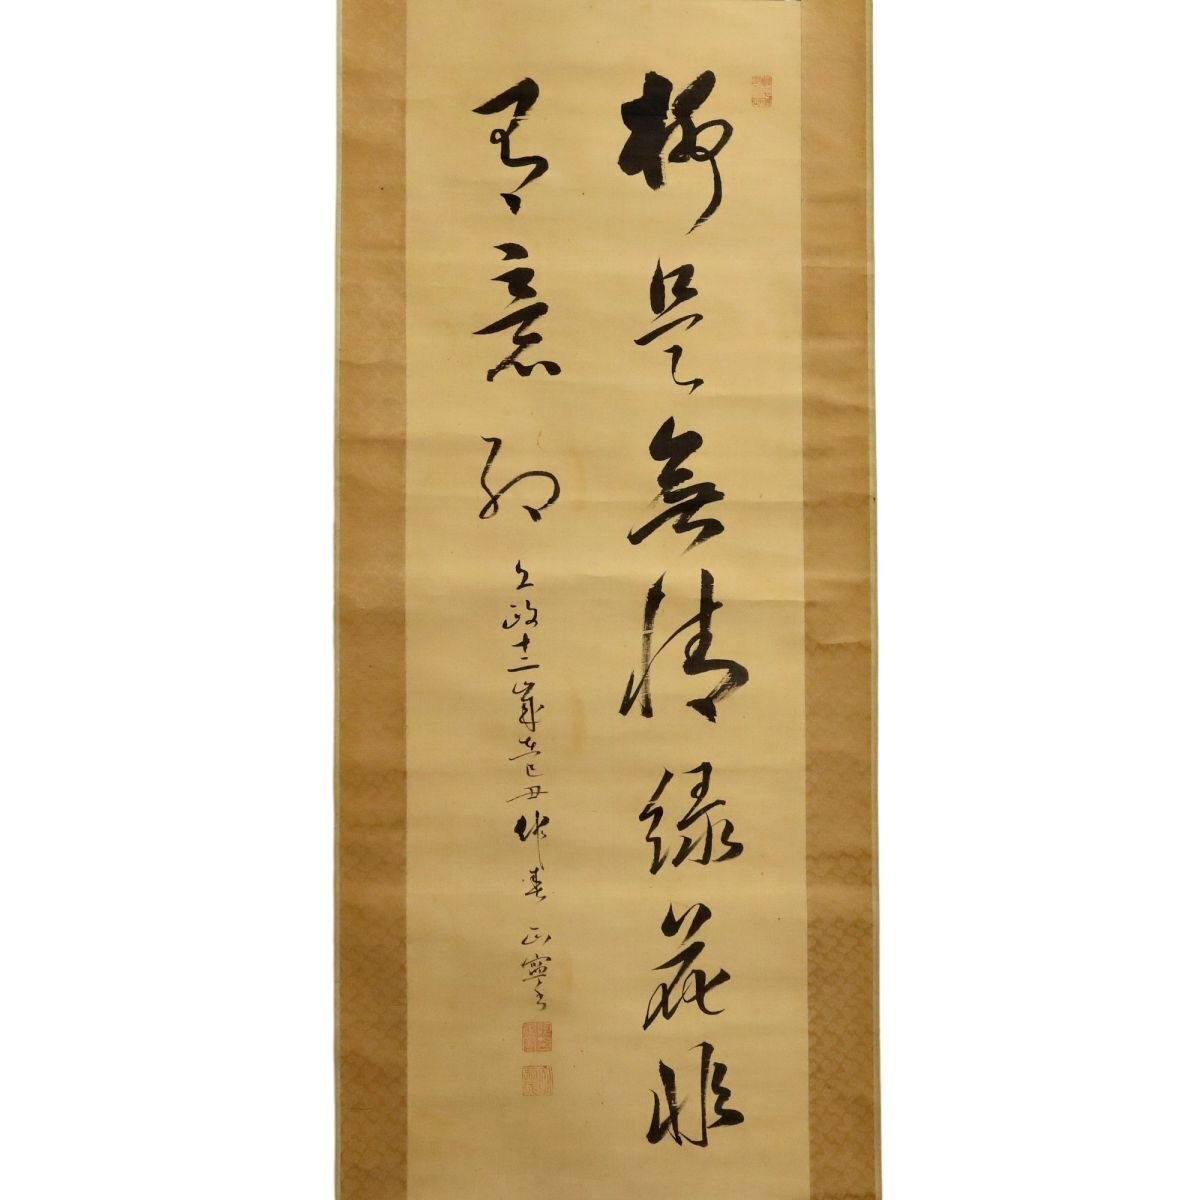 柳是無情緑花非
有意紅 文政十二歳在己丑仲春 正寧書